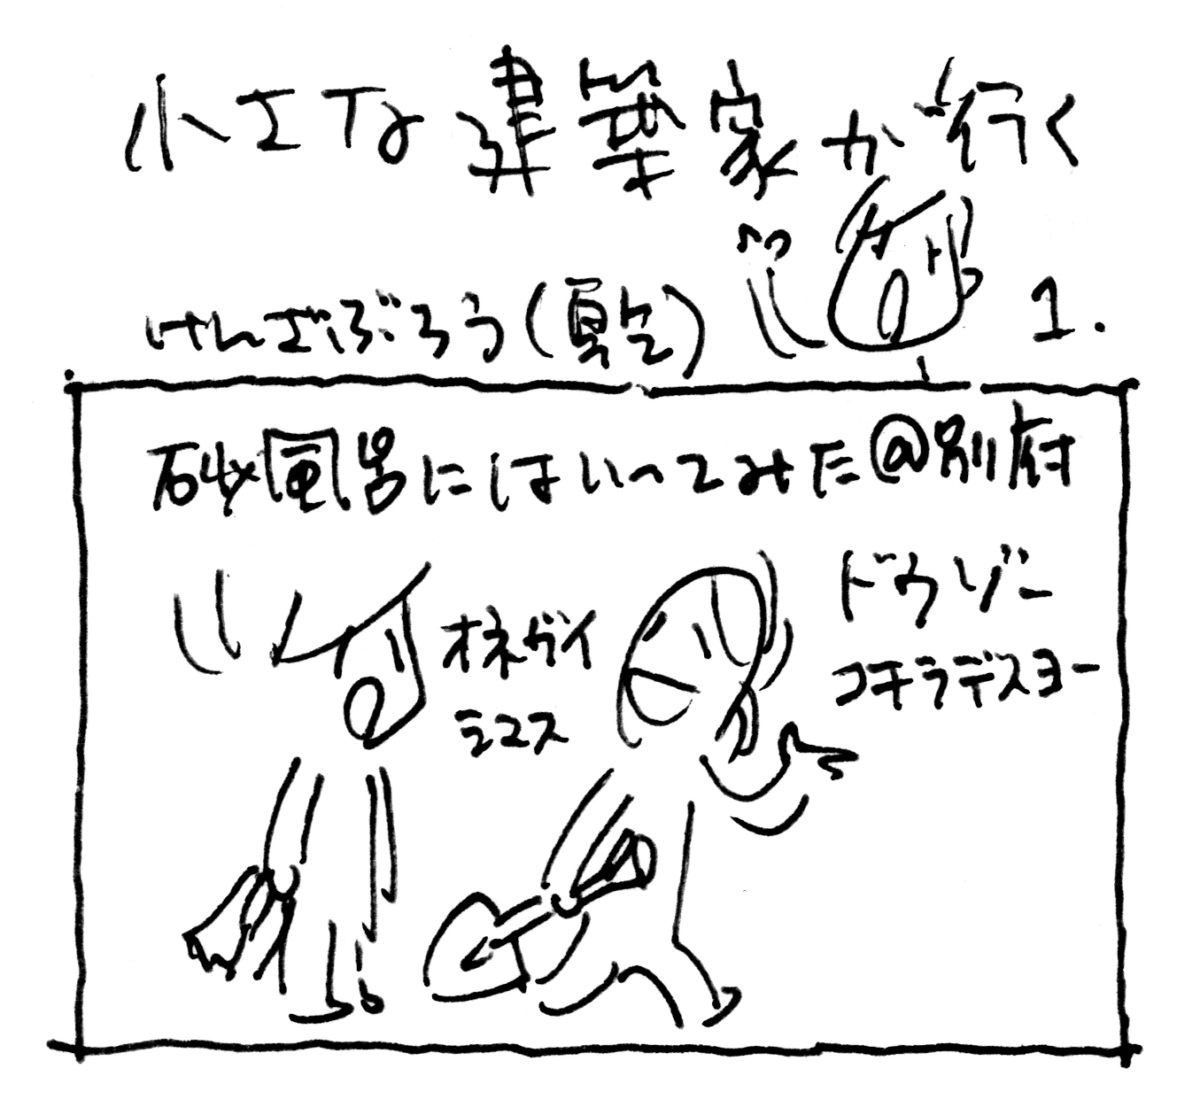 小さな建築家が行く
けんざぶろう(夏冬) 1.
砂風呂にはいってみた@別府
オネガイ
シマス
ドウゾー
コチラデスヨー